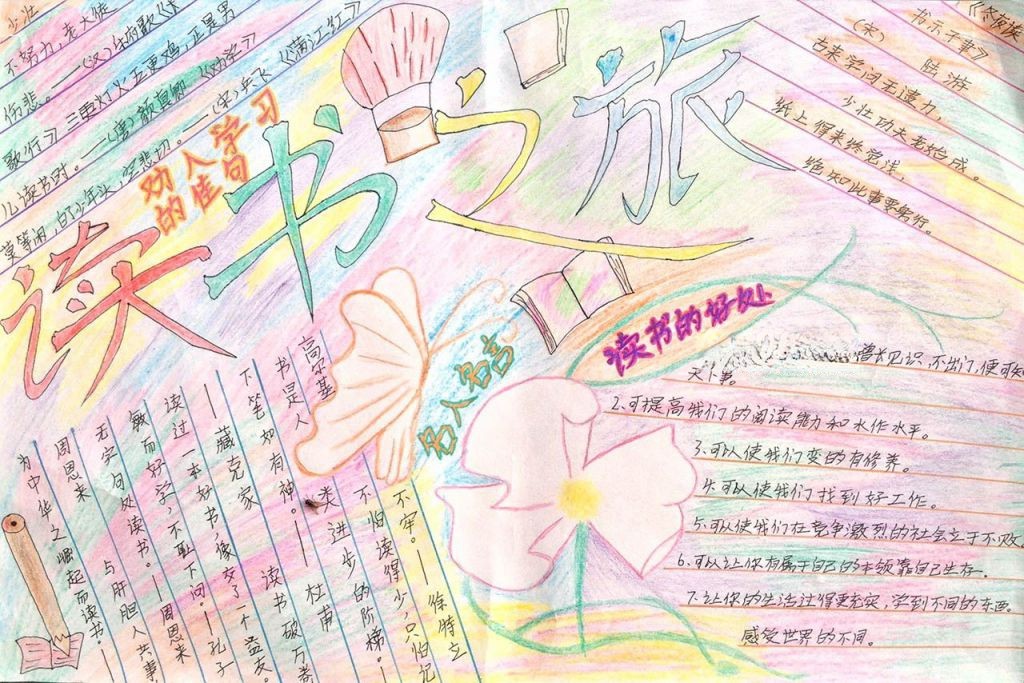 少壮
不努力，老大徒
伤悲。——(汉)乐府歌《长
歌行》三更灯火五更鸡，正是男
儿读书时。——(唐)颜真卿《劝学》
莫等闲，白了少年头，空悲切。——(宋)岳飞《满江红》
劝人学习
的佳句
读书之旅
《冬夜读
书示子聿》
(宋) 陆游
古来学问无遗力，
少壮功夫老始成。
纸上得来终觉浅，
绝知此事要躬行。
读书的好处
增长见识，不出门，便可知
天下事。
2、可提高我们的阅读能力和水作水平。
3、可以使我们变的有修养。
4、可以使我们找到好工作。
5、可以使我们在竞争激烈的社会立于不败。
6、可以让你有属于自己的本领靠自己生存。
7、让你的生活过得更充实，学到不同的东西。
感受世界的不同。
名人名言
不牢。——徐特立
不怕读得少，只怕记
类进步的阶梯。——
高尔基
书是人
下笔如有神。——杜甫
读书破万卷
——臧克家
读过一本好书，像交了一个益友。
敏而好学，不耻下问。——孔子
无字句处读书。——周恩来
与肝胆人共事，
周恩来
为中华之崛起而读书。——